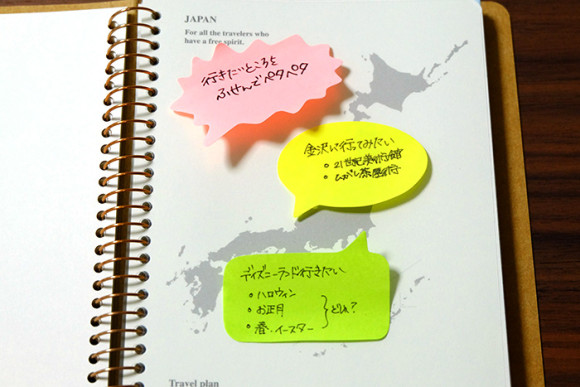 JAPAN
For all the travelers who
have a free spirit.
行きたいところを
ふせんでペタペタ
金沢に行ってみたい
• 21世紀美術館
• ひがし茶屋街
ディズニーランド行きたい
• ハロウィン
• お正月 } どれ?
• 春・イースター
Travel plan